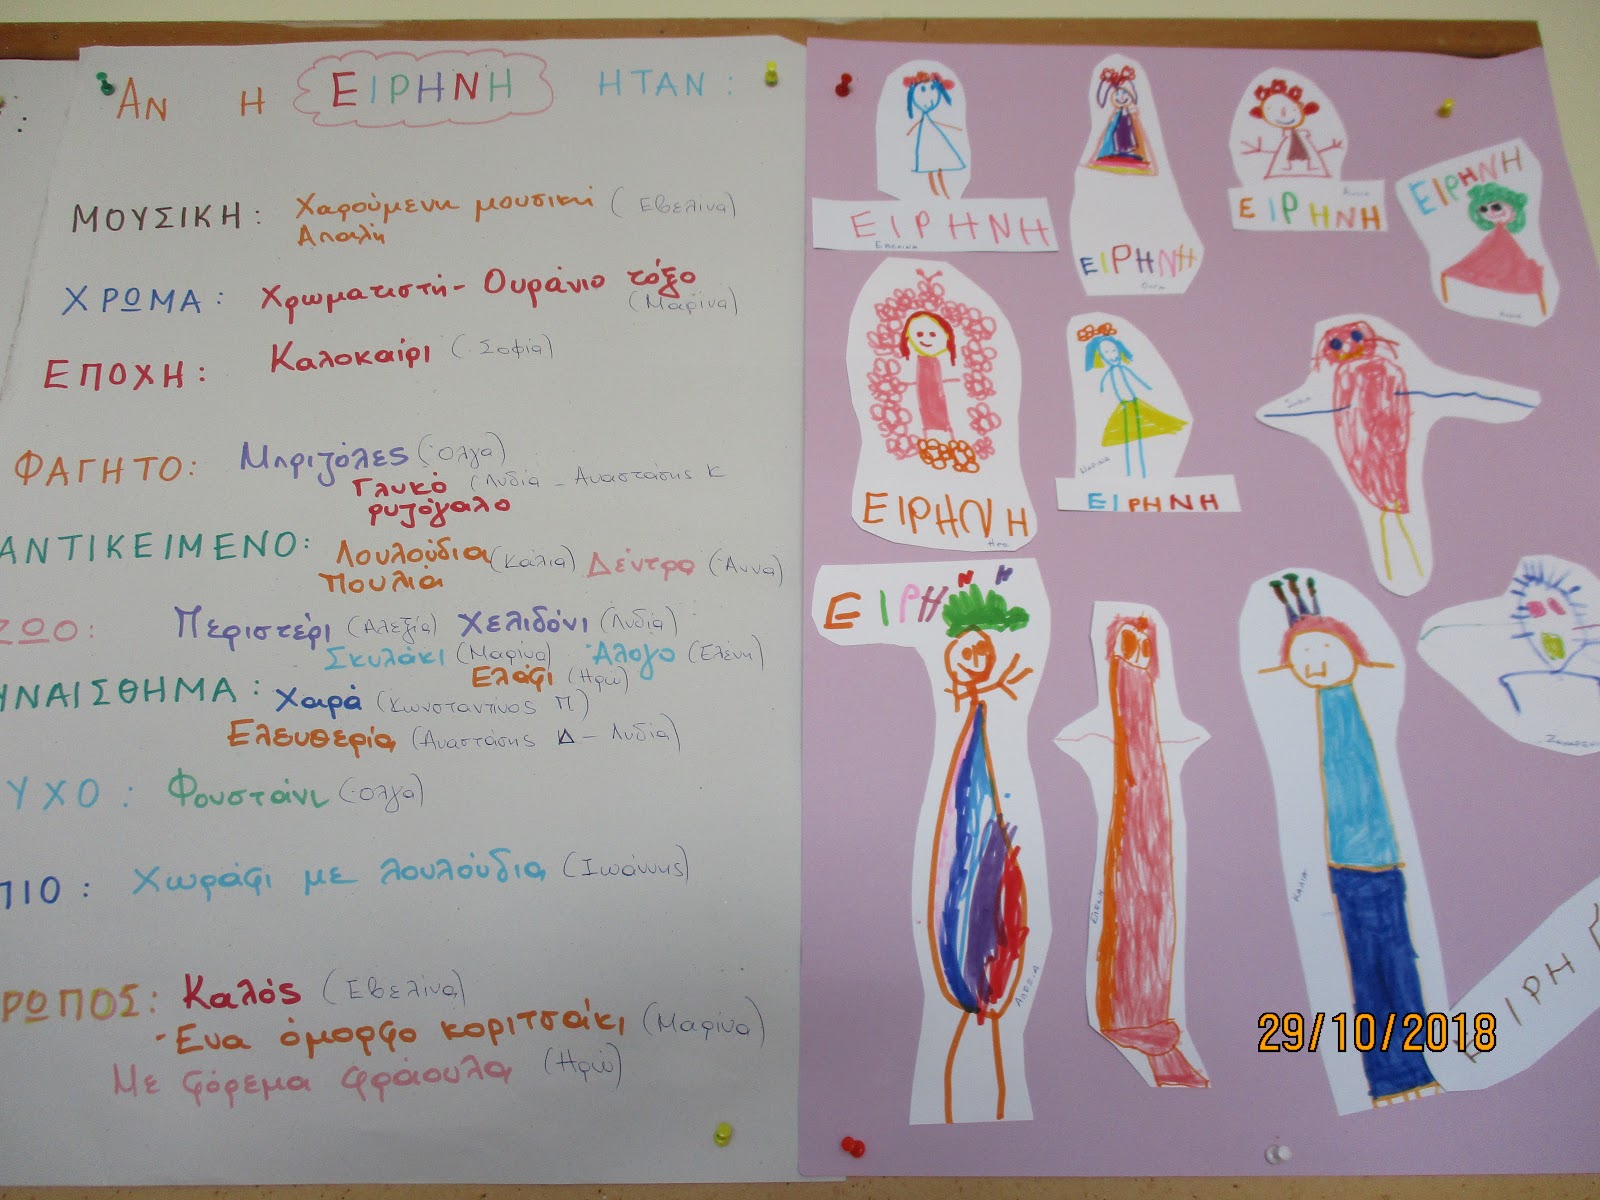 ΑΝ Η ΕΙΡΗΝΗ ΗΤΑΝ:
ΜΟΥΣΙΚΗ: Χαρούμενη μουσική (Εβελίνα)
Απαλή
ΧΡΩΜΑ: Χρωματιστή - Ουράνιο τόξο
(Μαρίνα)
ΕΠΟΧΗ: Καλοκαίρι (Σοφία)
ΦΑΓΗΤΟ: Μπριζόλες (Όλγα)
Γλυκό (Λυδία - Αναστάσης Κ
ρυζόγαλο
ΑΝΤΙΚΕΙΜΕΝΟ: Λουλούδια (Κάλια) Δέντρο (Άννα)
Πουλιά
ΖΩΟ: Περιστέρι (Αλεξία) Χελιδόνι (Λυδία)
Σκυλάκι (Μαρίνα) Άλογο (Ελένη)
Ελάφι (Ηρώ)
ΥΝΑΙΣΘΗΜΑ: Χαρά (Κωνσταντίνος Π)
Ελευθερία (Αναστάσης Δ - Λυδία)
ΥΧΟ: Φουστάνι (Όλγα)
ΠΙΟ: Χωράφι με λουλούδια (Ιωάννης)
ΡΩΠΟΣ: Καλός (Εβελίνα)
- Ένα όμορφο κοριτσάκι (Μαρίνα)
Με φόρεμα φράουλα (Ηρώ)
ΕΙΡΗΝΗ
ΕΒΕΛΙΝΑ
ΕΙΡΗΝΗ
ΟΛΓΑ
ΕΙΡΗΝΗ
ΕΙΡΗΝΗ
ΕΙΡΗΝΗ
ΗΡΩ
ΜΑΡΙΝΑ
ΕΙΡΗΝΗ
ΣΟΦΙΑ
ΕΙΡΗΝΗ
ΑΛΕΞΙΑ
ΕΛΕΝΗ
ΚΑΛΙΑ
ΕΙΡΗ
29/10/2018